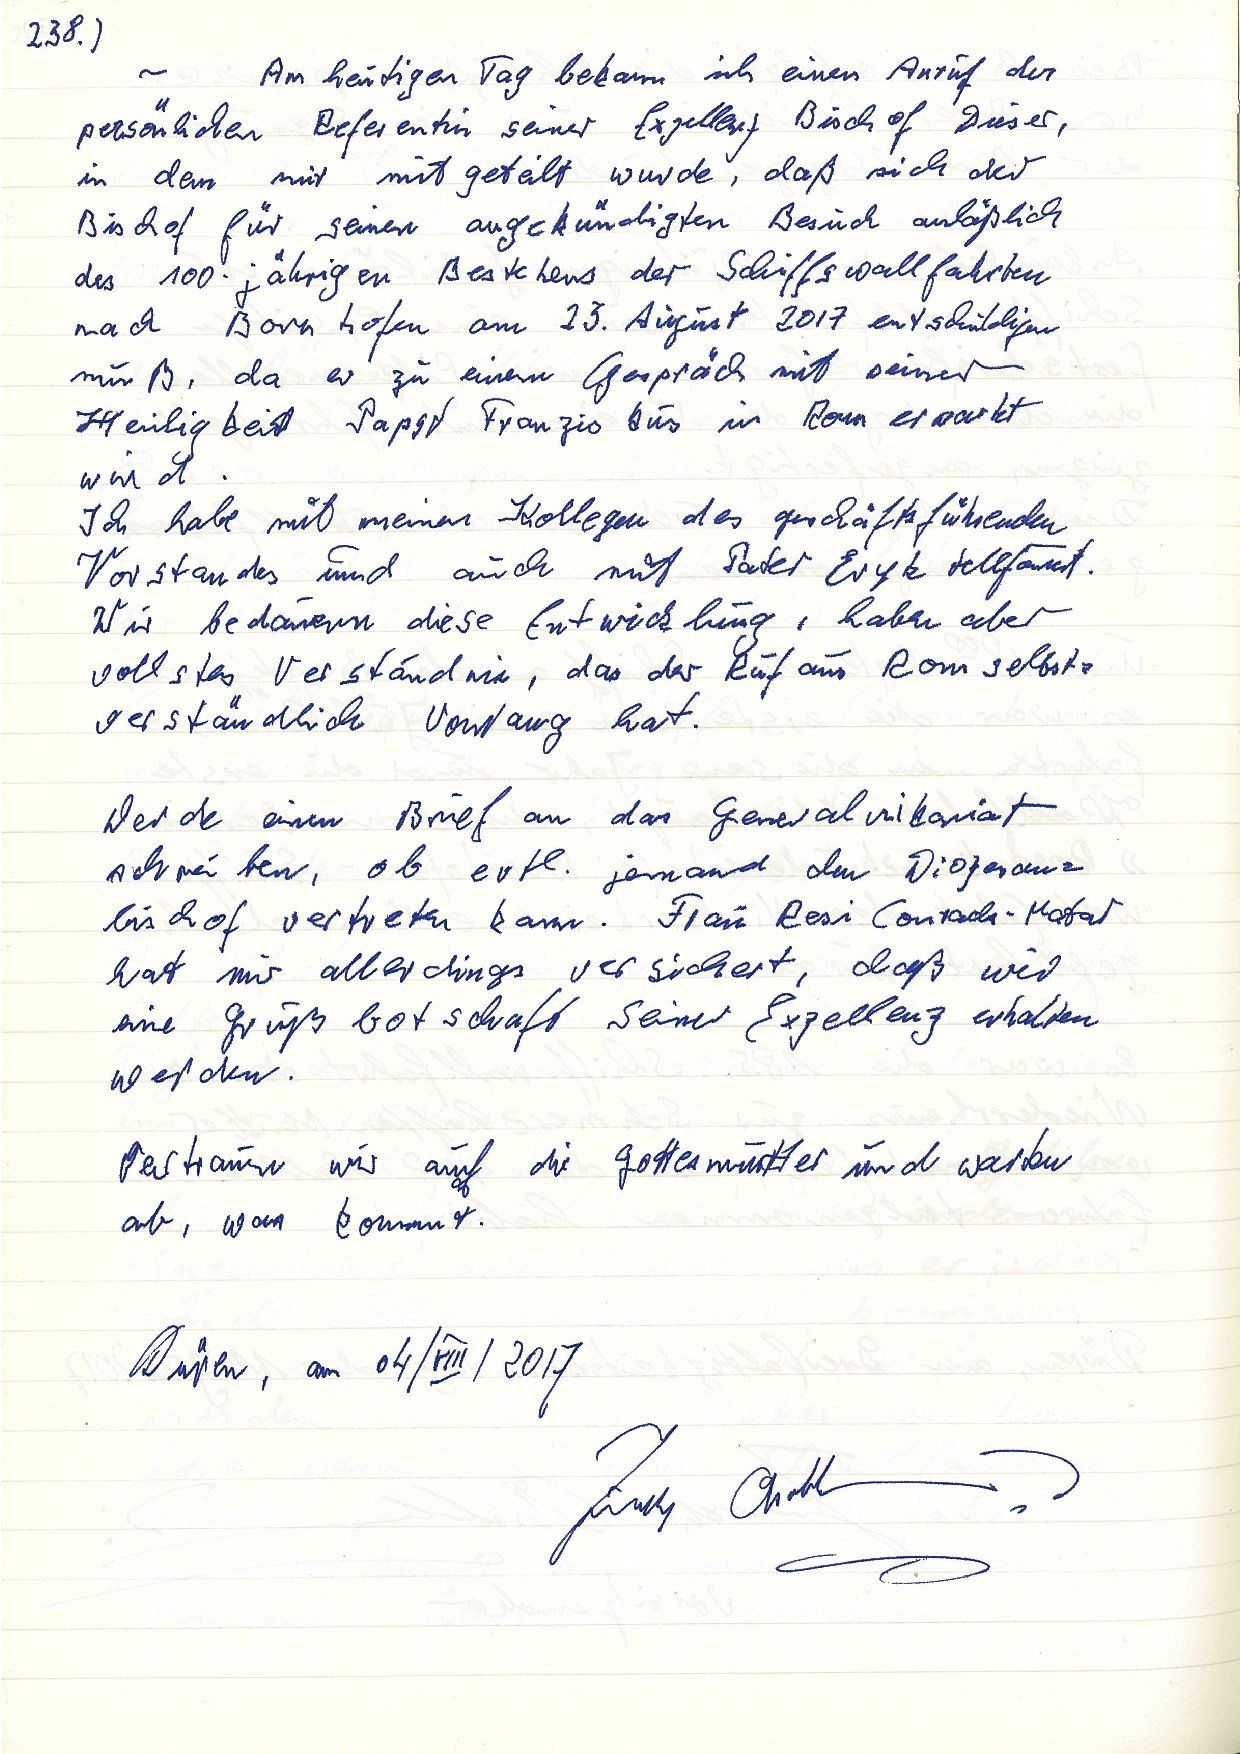 238.)
~ Am heutigen Tag bekam ich einen Anruf der
persönlichen Referentin seiner Exzellenz Bischof Dieser,
in dem mir mitgeteilt wurde, daß sich der
Bischof für seinen angekündigten Besuch anläßlich
des 100-jährigen Bestehens der Schiffswallfahrten
nach Bornhofen am 23. August 2017 entschuldigen
muß, da er zu einem Gespräch mit seiner
Heiligkeit Papst Franziskus in Rom erwartet
wird.
Ich habe mit meinen Kollegen des geschäftsführenden
Vorstandes und auch mit Pater Eryk telefoniert.
Wir bedauern diese Entwicklung, haben aber
vollstes Verständnis, das der Ruf aus Rom selbst=
verständlich Vorrang hat.
Werde einen Brief an das Generalvikariat
schreiben, ob evtl. jemand den Diözesan=
bischof vertreten kann. Frau Resi Conrads-Matar
hat mir allerdings versichert, daß wir
eine Grußbotschaft seiner Exzellenz erhalten
werden.
Vertrauen wir auf die Gottesmutter und warten
ab, was kommt.
Düren, am 04/VIII/2017